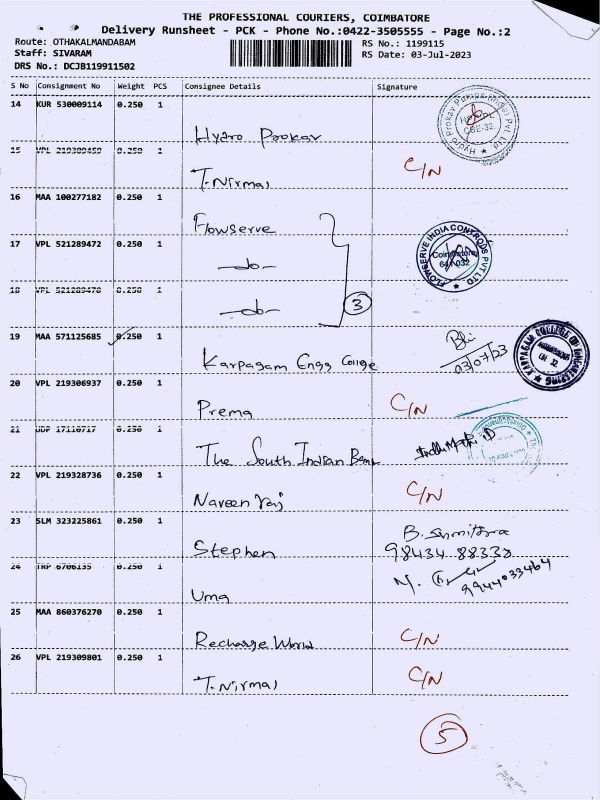 THE PROFESSIONAL COURIERS, COIMBATORE
Delivery Runsheet - PCK - Phone No.:0422-3505555 - Page No.:2
Route: OTHAKALMANDABAM RS No.: 1199115
Staff: SIVARAM RS Date: 03-Jul-2023
DRS No.: DCJB119911502
S No Consignment No Weight PCS Consignee Details Signature
14 KUR 530009114 0.250 1 Hydro Prokav
15 VPL 219309459 0.250 1 T.Nirmal C/N
16 MAA 100277182 0.250 1 Flowserve
17 VPL 521289472 0.250 1 -do-
FLOWSERVE INDIA CONTROLS PVT LTD. Coimbatore 641 032
18 VPL 521289478 0.250 1 -do- 3
19 MAA 571125685 0.250 1 Karpagam Engg College 03/07/23
KARPAGAM COLLEGE OF ENGINEERING
20 VPL 219306937 0.250 1 Prema C/N
21 UDP 17116717 0.250 1 The South Indian Bank
22 VPL 219328736 0.250 1 Naveen raj C/N
23 SLM 323225861 0.250 1 Stephen B. Sumithra
98434 88338
24 TRP 6706135 0.250 1 Uma 9944033464
25 MAA 860376270 0.250 1 Recharge World C/N
26 VPL 219309801 0.250 1 T.Nirmal C/N
5